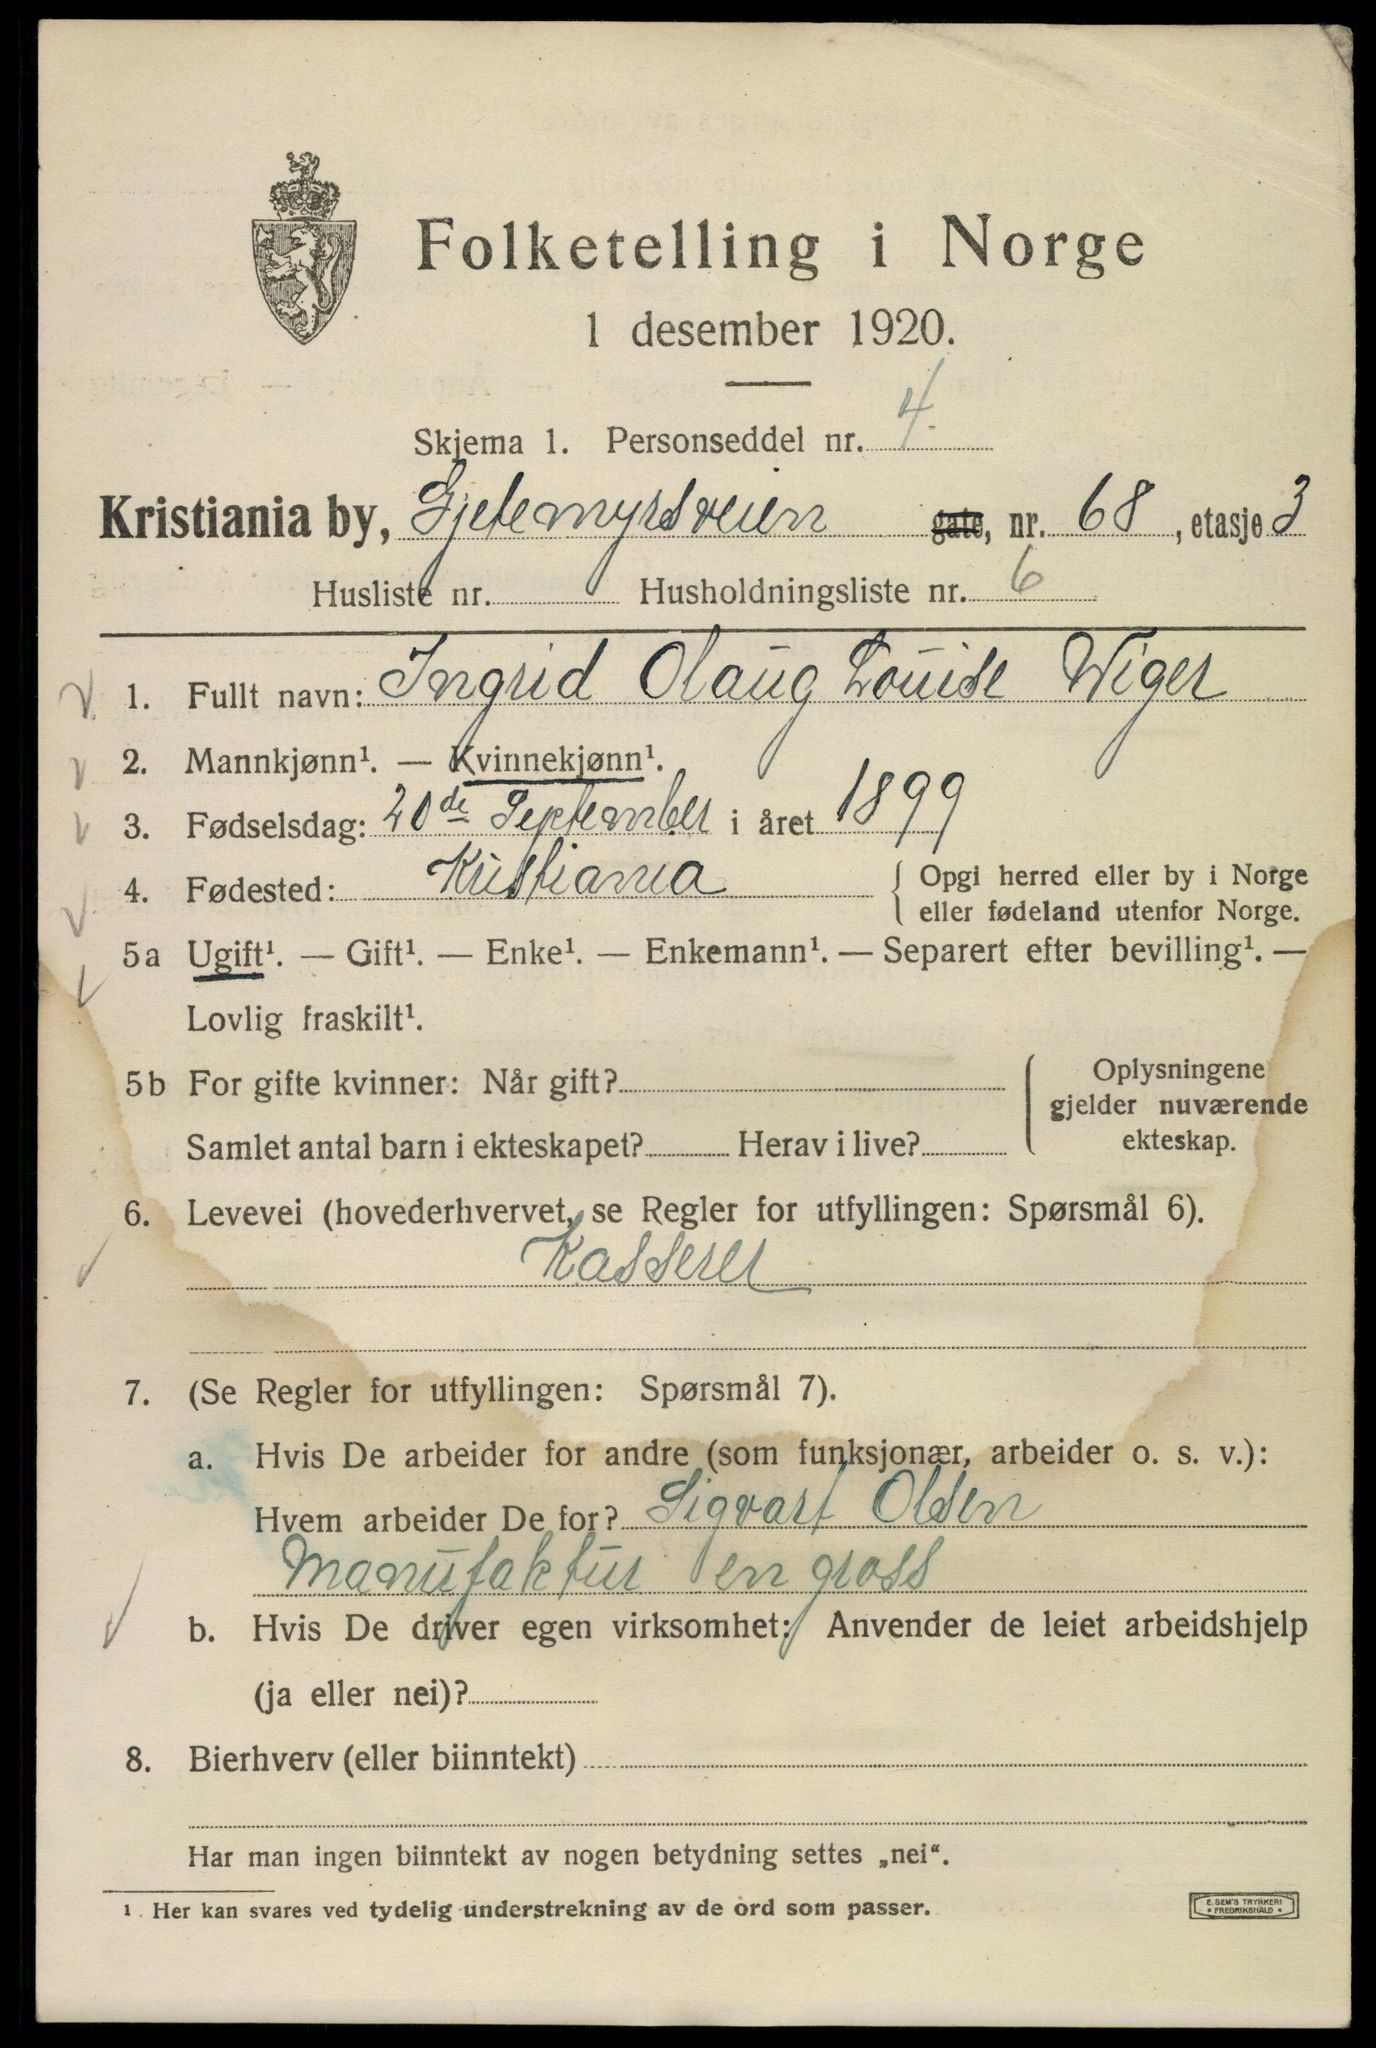 Folketelling i Norge
1 desember 1920.
Skjema 1. Personseddel nr. 4.
Kristiania by, Gjetemyrsveien gate, nr. 68, etasje 3
Husliste nr. Husholdningsliste nr. 6
1. Fullt navn: Ingrid Olaug Louise Wiger
2. Mannkjønn¹. — Kvinnekjønn¹.
3. Fødselsdag: 20de September i året 1899
4. Fødested: Kristiania { Opgi herred eller by i Norge
eller fødeland utenfor Norge.
5a Ugift¹. — Gift¹. — Enke¹. — Enkemann¹. — Separert efter bevilling¹. —
Lovlig fraskilt¹.
5b For gifte kvinner: Når gift? { Oplysningene
gjelder nuværende
Samlet antal barn i ekteskapet? Herav i live? ekteskap.
6. Levevei (hovederhvervet, se Regler for utfyllingen: Spørsmål 6).
Kasserer
7. (Se Regler for utfyllingen: Spørsmål 7).
a. Hvis De arbeider for andre (som funksjonær, arbeider o. s. v.):
Hvem arbeider De for? Sigvart Olsen
Manufaktur en gross
b. Hvis De driver egen virksomhet: Anvender de leiet arbeidshjelp
(ja eller nei)?
8. Bierhverv (eller biinntekt)
Har man ingen biinntekt av nogen betydning settes „nei“.
¹ Her kan svares ved tydelig understrekning av de ord som passer.
E. SEM'S TRYKKERI
* FREDRIKSHALD *